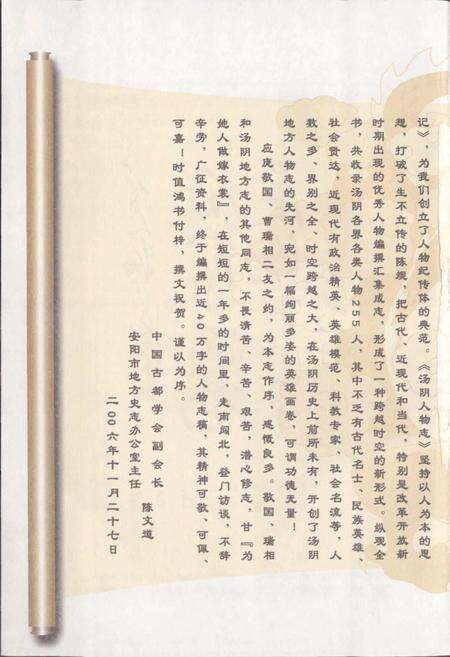 记》，为我们创立了人物纪传体的典范。《汤阴人物志》坚持以人为本的思
想，打破了生不立传的陈规，把古代、近现代和当代，特别是改革开放新
时期出现的优秀人物编撰汇集成志，形成了一种跨越时空的新形式。纵观全
书，共收录汤阴各界各类人物255人，其中不乏有古代名士、民族英雄、
社会贤达，近现代有政治精英、英雄模范、科教专家、社会名流等，人
数之多、界别之全、时空跨越之大，在汤阴历史上前所未有，开创了汤阴
地方人物志的先河，宛如一幅绚丽多姿的英雄画卷，可谓功德无量！
应庞敬国、曹瑞相二友之约，为本志作序，感慨良多。敬国、瑞相
和汤阴地方志的其他同志，不畏清苦、辛苦、艰苦，潜心修志，甘『为
他人做嫁衣裳』，在短短的一年多的时间里，走南闯北，登门访谈，不辞
辛劳，广征资料，终于编撰出近40万字的人物志稿，其精神可敬、可佩、
可嘉！时值鸿书付梓，撰文祝贺。谨以为序。
中国古都学会副会长
安阳市地方史志办公室主任
陈文道
二00六年十一月二十七日